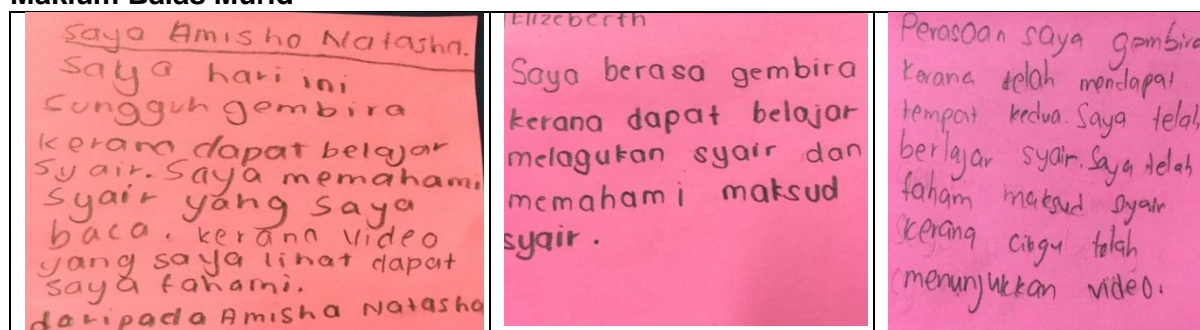 Maklum Balas Murid
Saya Amisha Natasha.
Saya hari ini
sungguh gembira
kerana dapat belajar
syair. Saya memahami
syair yang saya
baca. kerana video
yang saya lihat dapat
saya fahami.
daripada Amisha Natasha
Elizeberth
Saya berasa gembira
kerana dapat belajar
melagukan syair dan
memahami maksud
syair.
Perasaan saya gembira
kerana telah mendapat
tempat kedua. Saya telah
berlajar syair. Saya telah
faham maksud syair
kerana cikgu telah
menunjukkan video.